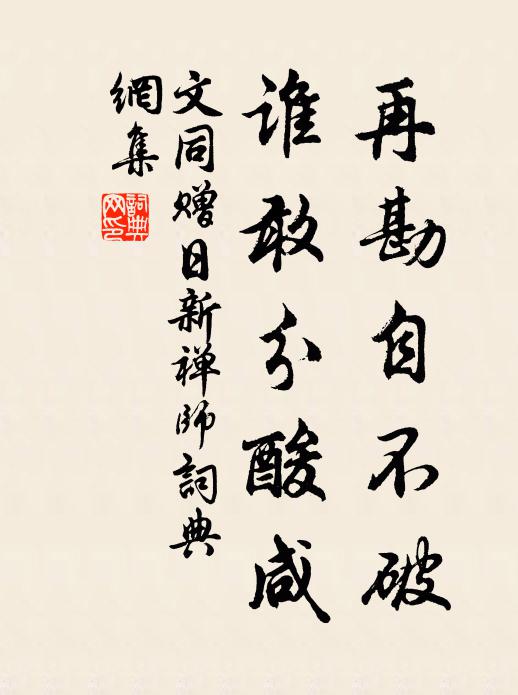 再勘自不破
谁敢分酸咸
文同赠日新禅师詞典
網集
詞典
网印